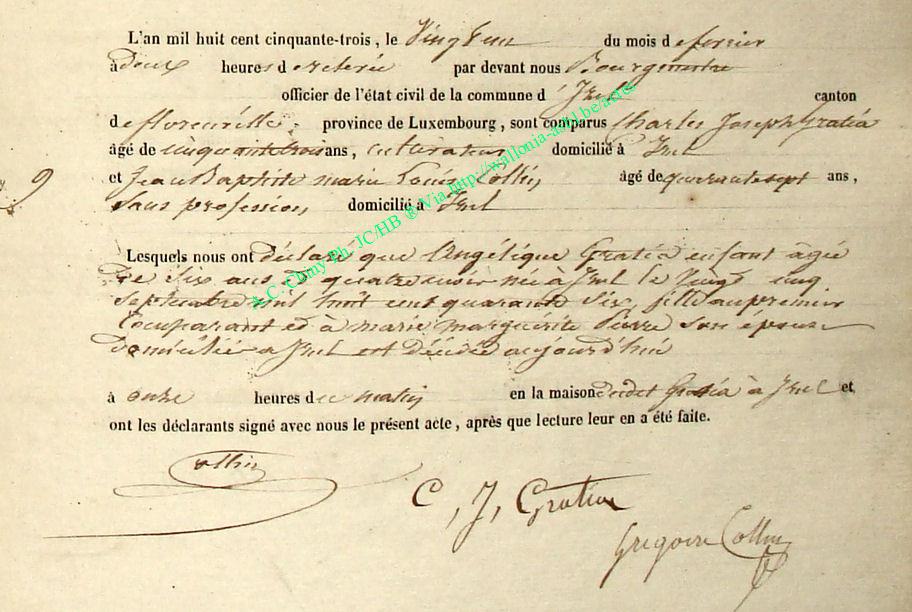 L'an mil huit cent cinquante-trois, le Vingt un du mois de fevrier
à deux heures de relevée par devant nous Bourgmestre
officier de l'état civil de la commune d' Izel canton
de florenville, province de Luxembourg, sont comparus Charles Joseph Gratia
âgé de cinquante trois ans, cultivateur domicilié à Izel
et Jean Baptiste marie Louis Collin, âgé de quarante sept ans,
9
sans profession, domicilié à Izel
Lesquels nous ont déclaré que Angélique Gratia enfant âgée
de six ans et quatre mois née à Izel le vingt cinq
Septembre mil huit cent quarante six, fille au premier
Comparant et à marie marguerite Pierre son épouse
domiciliée a Izel est décédée aujourd'hui
à onze heures du matin en la maison dudit Gratia à Izel et
ont les déclarants signé avec nous le présent acte, après que lecture leur en a été faite.
Collin
C, J, Gratia
Gregoire Collin
A.C. Chiny Ph. JC/HB ® Via http://wallonia-asbl.be/actes